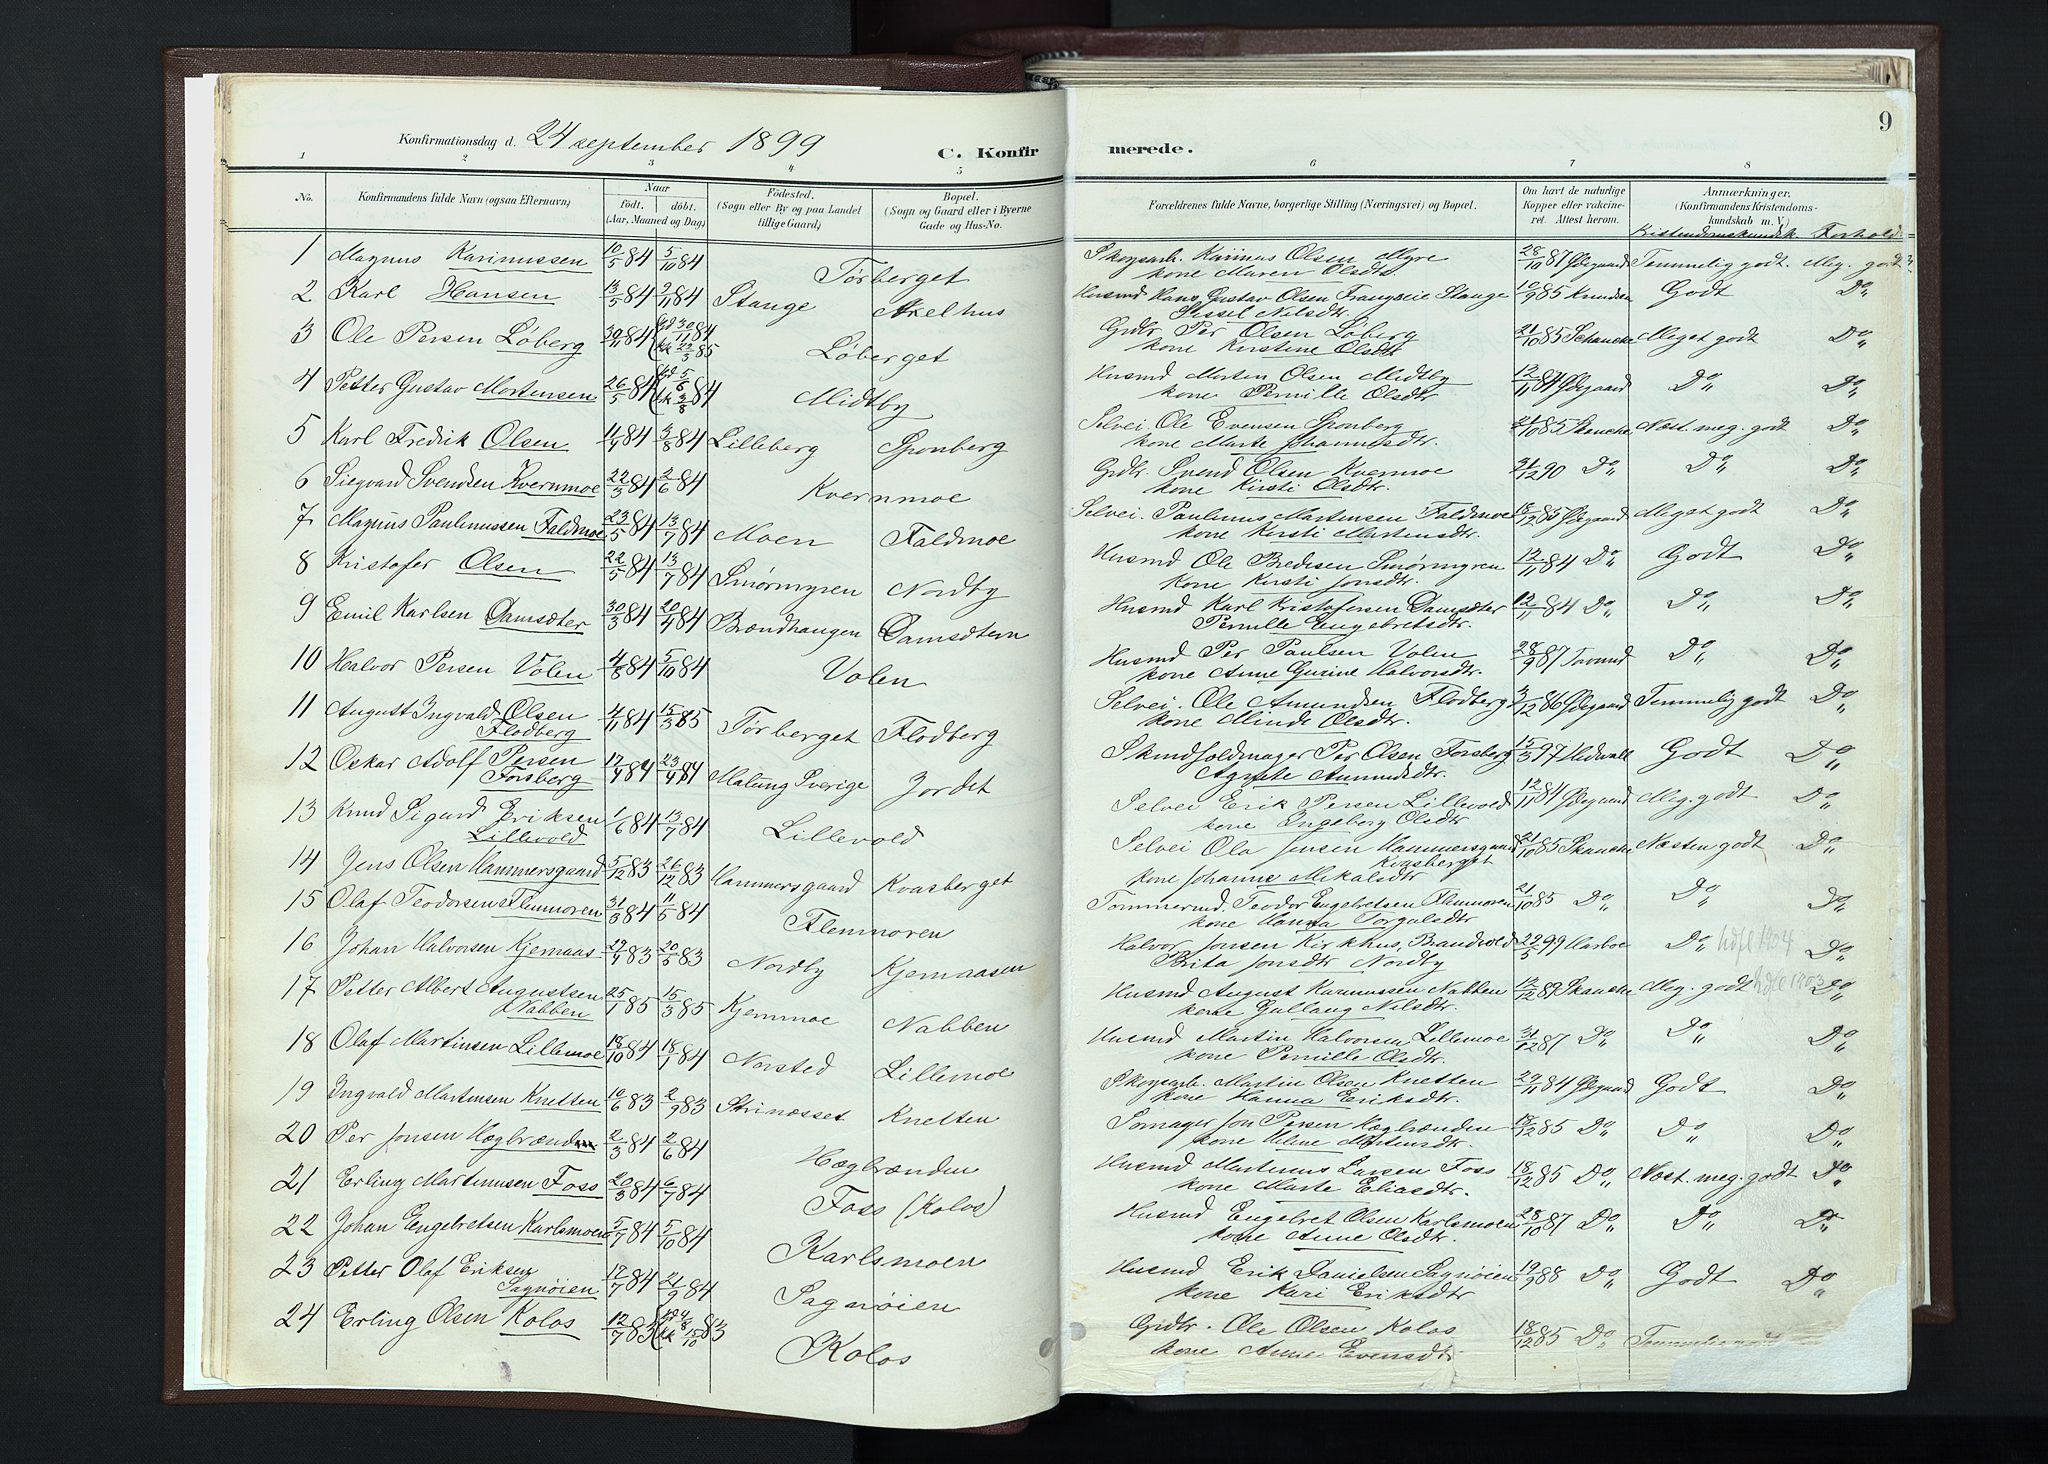 Konfirmationsdag d. 24 september 1899
C. Konfirmerede.
9
1 2 3 4 5 6 7 8
No. Konfirmandens fulde Navn (ogsaa Efternavn). Naar født. døbt. (Aar, Maaned og Dag) Fødested. (Sogn eller By og paa Landet tillige Gaard) Bopæl. (Sogn og Gaard eller i Byerne Gade og Hus-No. Forældrenes fulde Navne, borgerlige Stilling (Næringsvei) og Bopæl. Om havt de naturlige Kopper eller vaccineret. Attest herom. Anmærkninger. (Konfirmandens Kristendomskundskab m. V.)
Kristendomskundsk. Forhold.
1 Magnus Karinussen 10/5 84 5/10 84 Tørberget Skogsarb. Karinus Olsen Myre 28/10 87 Ødegaard Temmelig godt. Meg. godt
kone Maren Olsdtr.
2 Karl Hansen 13/5 84 2/11 84 Stange Akelhus Husmd Hans Gustav Olsen Stange 10/9 85 Knudsen Godt Do
Sissel Nilsdtr.
3 Ole Persen Løberg 30/11 84 hd 30/11 84 kk 22/3 85 Løberget Grdbr Per Olsen Løberg 21/10 85 Schancke Meget godt Do
kone Kirstine Olsdtr
4 Petter Gustav Mortensen 26/5 84 hd 5/6 kk 3/8 84 Midtby Husmd Morten Olsen Midtby 12/11 84 Ødegaard Do Do
kone Pernille Olsdtr
5 Karl Fredrik Olsen 11/4 84 3/8 84 Lilleberg Sponberg Selvei Ole Evensen Sponberg 21/10 85 Skancke Næst. meg. godt Do
kone Marte Johannesdtr.
6 Sigvard Svendsen Kvernmoe 22/3 84 2/6 84 Kvernmoe Grdbr Svend Olsen Kvernmoe 21/12 90 Do Do Do
kone Kirsti Olsdtr.
7 Magnus Paulinussen Faldmoe 23/5 84 13/7 84 Moen Faldmoe Selvei. Paulinus Martensen Faldmoe 18/12 85 Ødegaard Meget godt Do
kone Kersti Martensdtr.
8 Kristofer Olsen 22/5 84 13/7 84 Smørmyren Nordby Husmd Ole Bredesen Smørmyren 12/11 84 Do Godt Do
kone Kirsti Jonsdtr.
9 Emil Karlsen Damsæter 30/3 84 20/4 84 Brændhaugen Damsætern Husmd Karl Kristofersen Damsæter 12/11 84 Do Do Do
Pernille Engebretsdtr.
10 Halvor Persen Volen 4/8 84 5/10 84 Volen Husmd Per Paulsen Volen 28/9 87 Do Do
kone Anne Gurine Halvorsdtr.
11 August Ingvald Olsen 4/11 84 15/3 85 Tørberget Flodberg Selvei. Ole Amundsen Flodberg 3/12 86 Ødegaard Temmelig godt Do
Flodberg kone Minde Olsdtr.
12 Oskar Adolf Persen 17/4 84 23/4 84 Malung Sverige Jordet Skindfoldmager Per Olsen Forsberg 15/3 97 Hedvall Godt Do
Forsberg Agnete Amundsdtr.
13 Knud Sigard Eriksen 1/6 84 13/7 84 Lillevold Selvei Erik Persen Lillevold 12/11 84 Ødegaard Meg. godt Do
Lillevold kone Ingeborg Olsdtr
14 Jens Olsen Hammersgaard 5/12 83 26/12 83 Hammersgaard Kvasberget Selvei Ola Jensen Hammersgaard 21/10 85 Skancke Næsten godt Do
Kvasberget
kone Johanne Mikalsdtr
15 Olaf Teodorsen Flenmoren 31/3 84 11/5 84 Flenmoren Tømmermd. Teodor Engebretsen Flenmoren 21/10 85 Do Do Do
kone Hanna Torgalsdtr
16 Johan Halvorsen Kjernaas 29/4 83 20/5 83 Nordby Kjernaasen Halvor Jonsen Kirkhus, Brandvold 29/5 99 Harboe Do Do
Brita Jonsdtr Nordby
17 Petter Albert Augustsen 25/1 85 15/3 85 Kjemmoe Nabben Husmd August Rasmussen Nabben 17/12 89 Skancke Meg. godt Do
Nabben kone Gullaug Nilsdtr.
18 Olaf Martinsen Lillemoe 18/10 84 18/1 84 Norsted Lillemoe Husmd Martin Halvorsen Lillemoe 31/12 87 Do Do Do
kone Pernille Olsdtr.
19 Ingvald Martensen Knetten 10/6 83 2/9 83 Strinæsset Knetten Skogsarb. Martin Olsen Knetten 29/11 84 Ødegaard Godt Do
kone Hanna Eriksdtr.
20 Per Jonsen Hægbrænd 2/3 84 2/6 84 Hægbrænden Somager Jon Persen Hægbrænden 18/12 85 Do Do Do
kone Helene Mortensdtr.
21 Erling Martinusen Foss 20/3 84 6/7 84 Foss (Kolos) Husmd Martinus Larsen Foss 18/12 85 Do Næst. meg. godt Do
kone Marte Eliasdtr.
22 Johan Engebretsen Karlsmoen 5/7 84 5/10 84 Karlsmoen Husmd Engebret Olsen Karlsmoen 28/10 87 Do Do Do
kone Anne Olsdtr.
23 Petter Olaf Eriksen 17/7 84 21/9 84 Sagnøien Husmd Erik Danielsen Sagnøien 19/9 88 Do Godt Do
Sagnøien kone Kari Eriksdtr
24 Erling Olsen Kolos 12/7 83 hd 4/8 kk 15/10 83 Kolos Grdbr. Ole Olsen Kolos 18/12 85 Do Temmelig godt
kone Anne Evensdtr